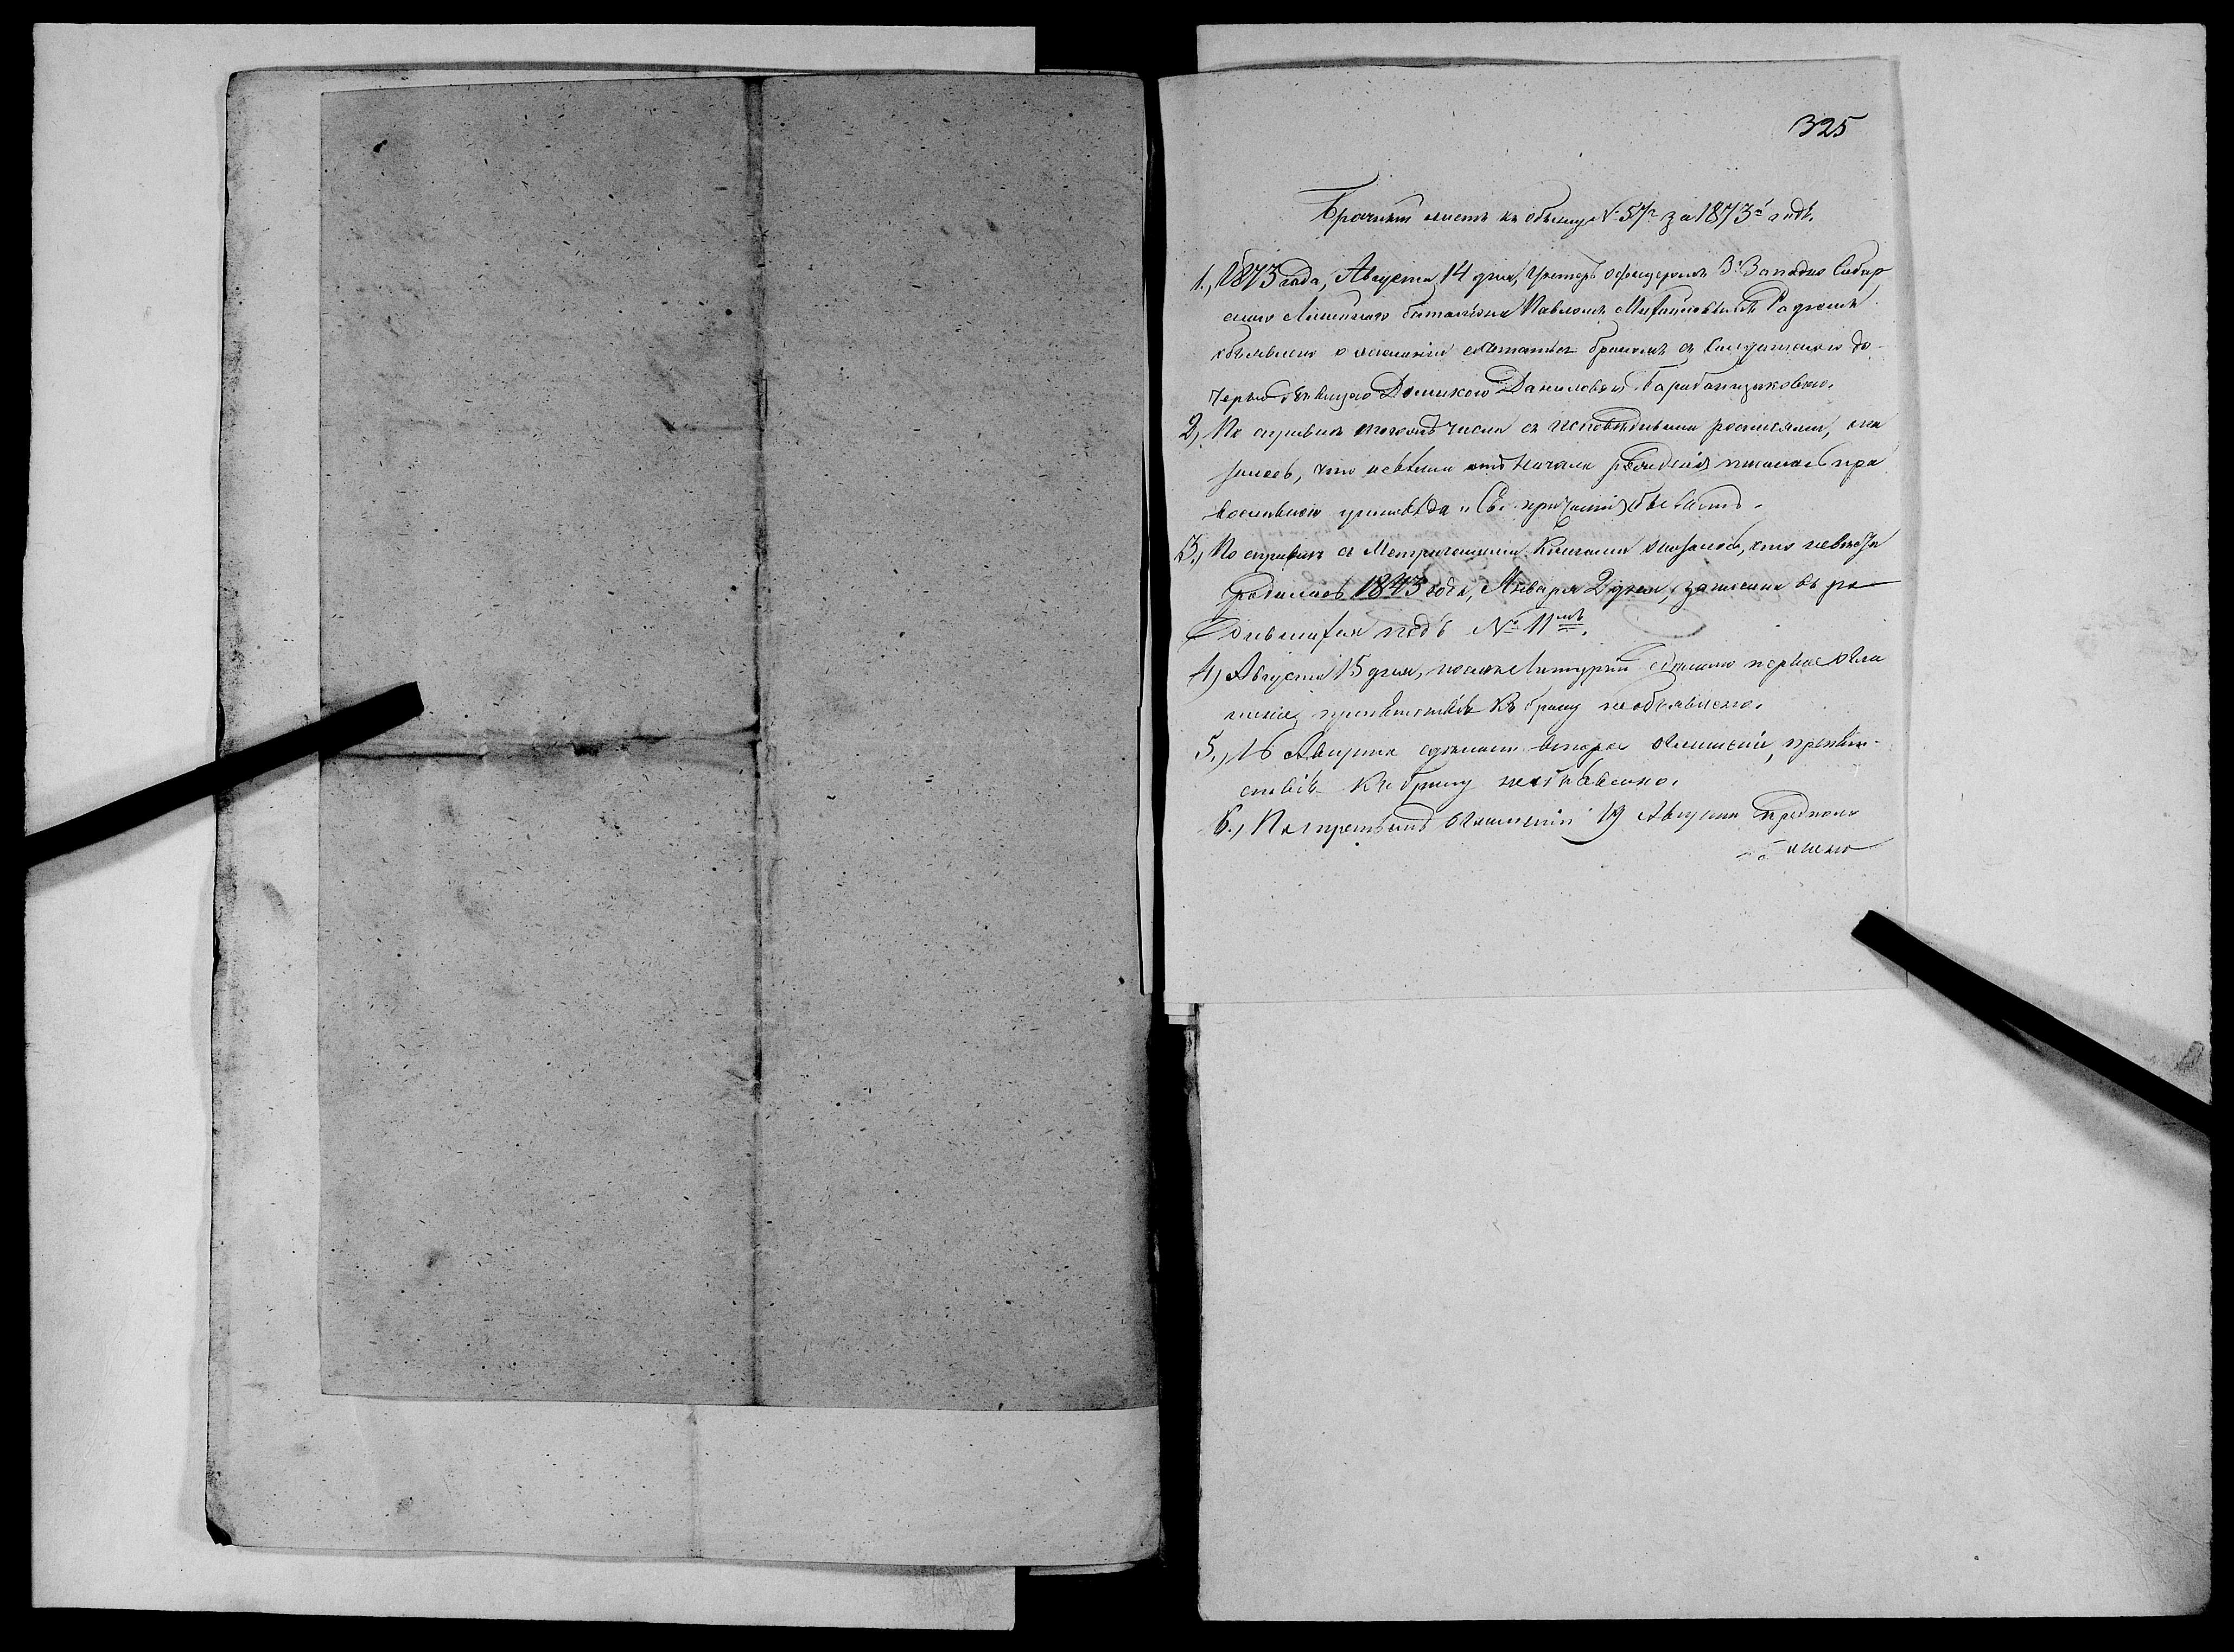 325
Брачный листъ къ обыску № 57й за 1873й годъ.
1., 1873 года, Августа 14 дня, унтеръ офицеромъ 3го Западно Сибир
скаго Линейнаго баталіона Павломъ Михайловымъ
объявлено о желаніи сочетаться бракомъ съ Солдатскою до-
черью дѣвицею Даниловою
2, По справкѣ того же числа съ Исповѣдными росписями, ока
залось, что невѣста отъ начала рожденія право
славнаго и Св. причастіи бываетъ.
3., По справкѣ съ Метрическими Книгами оказалось, что невѣста
родилась 1843 года, Января 2 дня, записана въ ро
дившихся подъ № 11мъ.
4, Августа 15 дня, послѣ Литургіи сдѣлано первое огла
шеніе, препятствій къ браку необъявлено.
5., 16 Августа сдѣлано второе оглашеніе, препят-
ствій къ браку необъявлено.
6., По третьемъ оглашеніи 19 Августа предполо